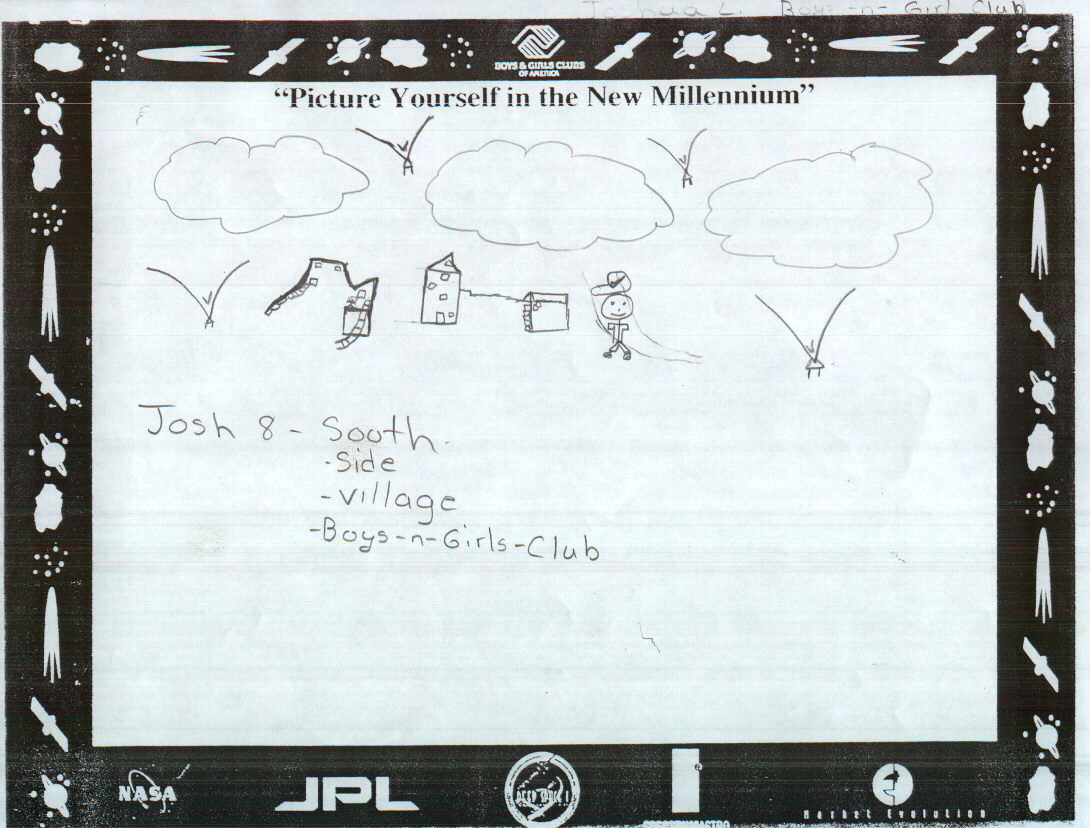 Joshua L. Boys-n-Girl Club
BOYS & GIRLS CLUBS
OF AMERICA
“Picture Yourself in the New Millennium”
Josh 8 - South.
-Side
-Village
-Boys-n-Girls-Club
NASA
JPL
DEEP SPACE 1
Market Evolution